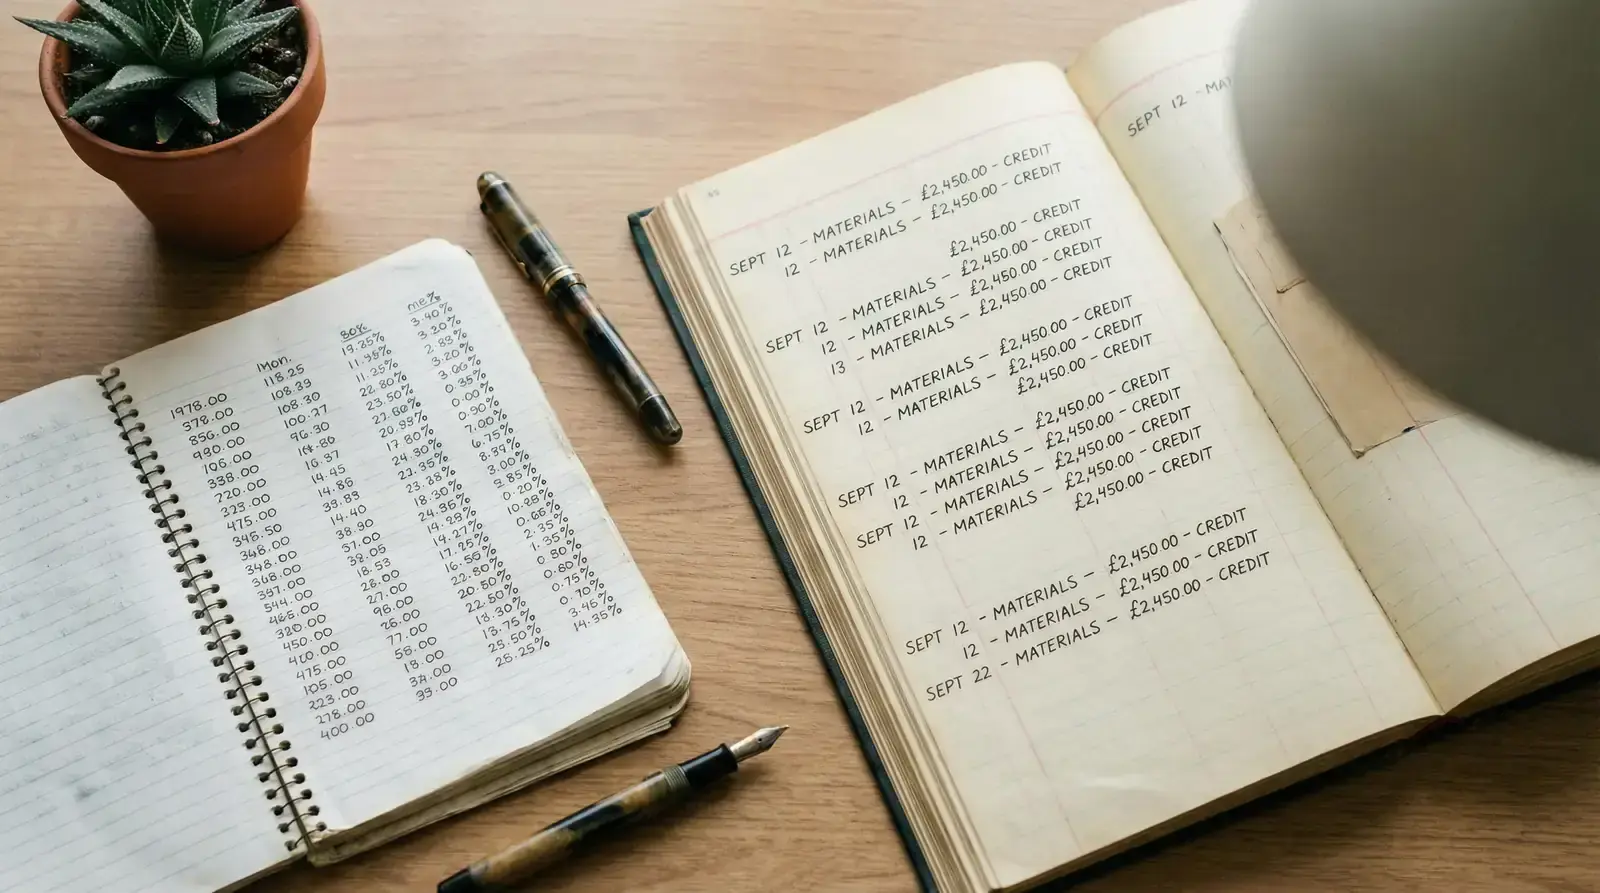 1Mon. 80% me%
1978.00 118.25 19.25% 3.40%
378.00 108.39 11.95% 3.20%
856.00 108.30 11.25% 2.83%
990.00 100.27 22.80% 3.20%
106.00 96.30 23.50% 3.00%
338.00 20.95% 0.35%
720.00 16.37 0.00%
323.00 14.45 17.80% 0.90%
475.00 14.86 24.30% 7.00%
345.50 39.89 23.35% 6.75%
348.00 14.40 23.28% 8.39%
348.00 38.90 18.30% 3.00%
368.00 37.00 24.35%
397.00 39.05 14.29% 0.20%
544.00 18.53 14.27% 10.28%
465.00 28.00 17.25% 0.66%
320.00 27.00 16.55% 2.35%
450.00 96.00 22.80% 1.35%
26.00 20.50% 0.80%
475.00 77.00 22.50% 0.80%
105.00 58.00 13.30% 0.75%
223.00 18.00 13.75% 0.70%
278.00 34.00 25.50% 3.45%
400.00 39.00 25.25% 14.35%
SEPT 12 - MATERIALS - £2,450.00 - CREDIT
12 - MATERIALS - £2,450.00 - CREDIT
£2,450.00 - CREDIT
SEPT 12 - MATERIALS - £2,450.00 - CREDIT
12 - MATERIALS - £2,450.00 - CREDIT
13 - MATERIALS - £2,450.00 - CREDIT
SEPT 12 - MATERIALS - £2,450.00 - CREDIT
12 - MATERIALS - £2,450.00 - CREDIT
£2,450.00 - CREDIT
SEPT 12 - MATERIALS - £2,450.00 - CREDIT
12 - MATERIALS - £2,450.00 - CREDIT
SEPT 12 - MATERIALS - £2,450.00 - CREDIT
12 - MATERIALS - £2,450.00 - CREDIT
£2,450.00 - CREDIT
SEPT 12 - MATERIALS - £2,450.00 - CREDIT
12 - MATERIALS - £2,450.00 - CREDIT
SEPT 22 - MATERIALS - £2,450.00 - CREDIT
SEPT 12 - MA